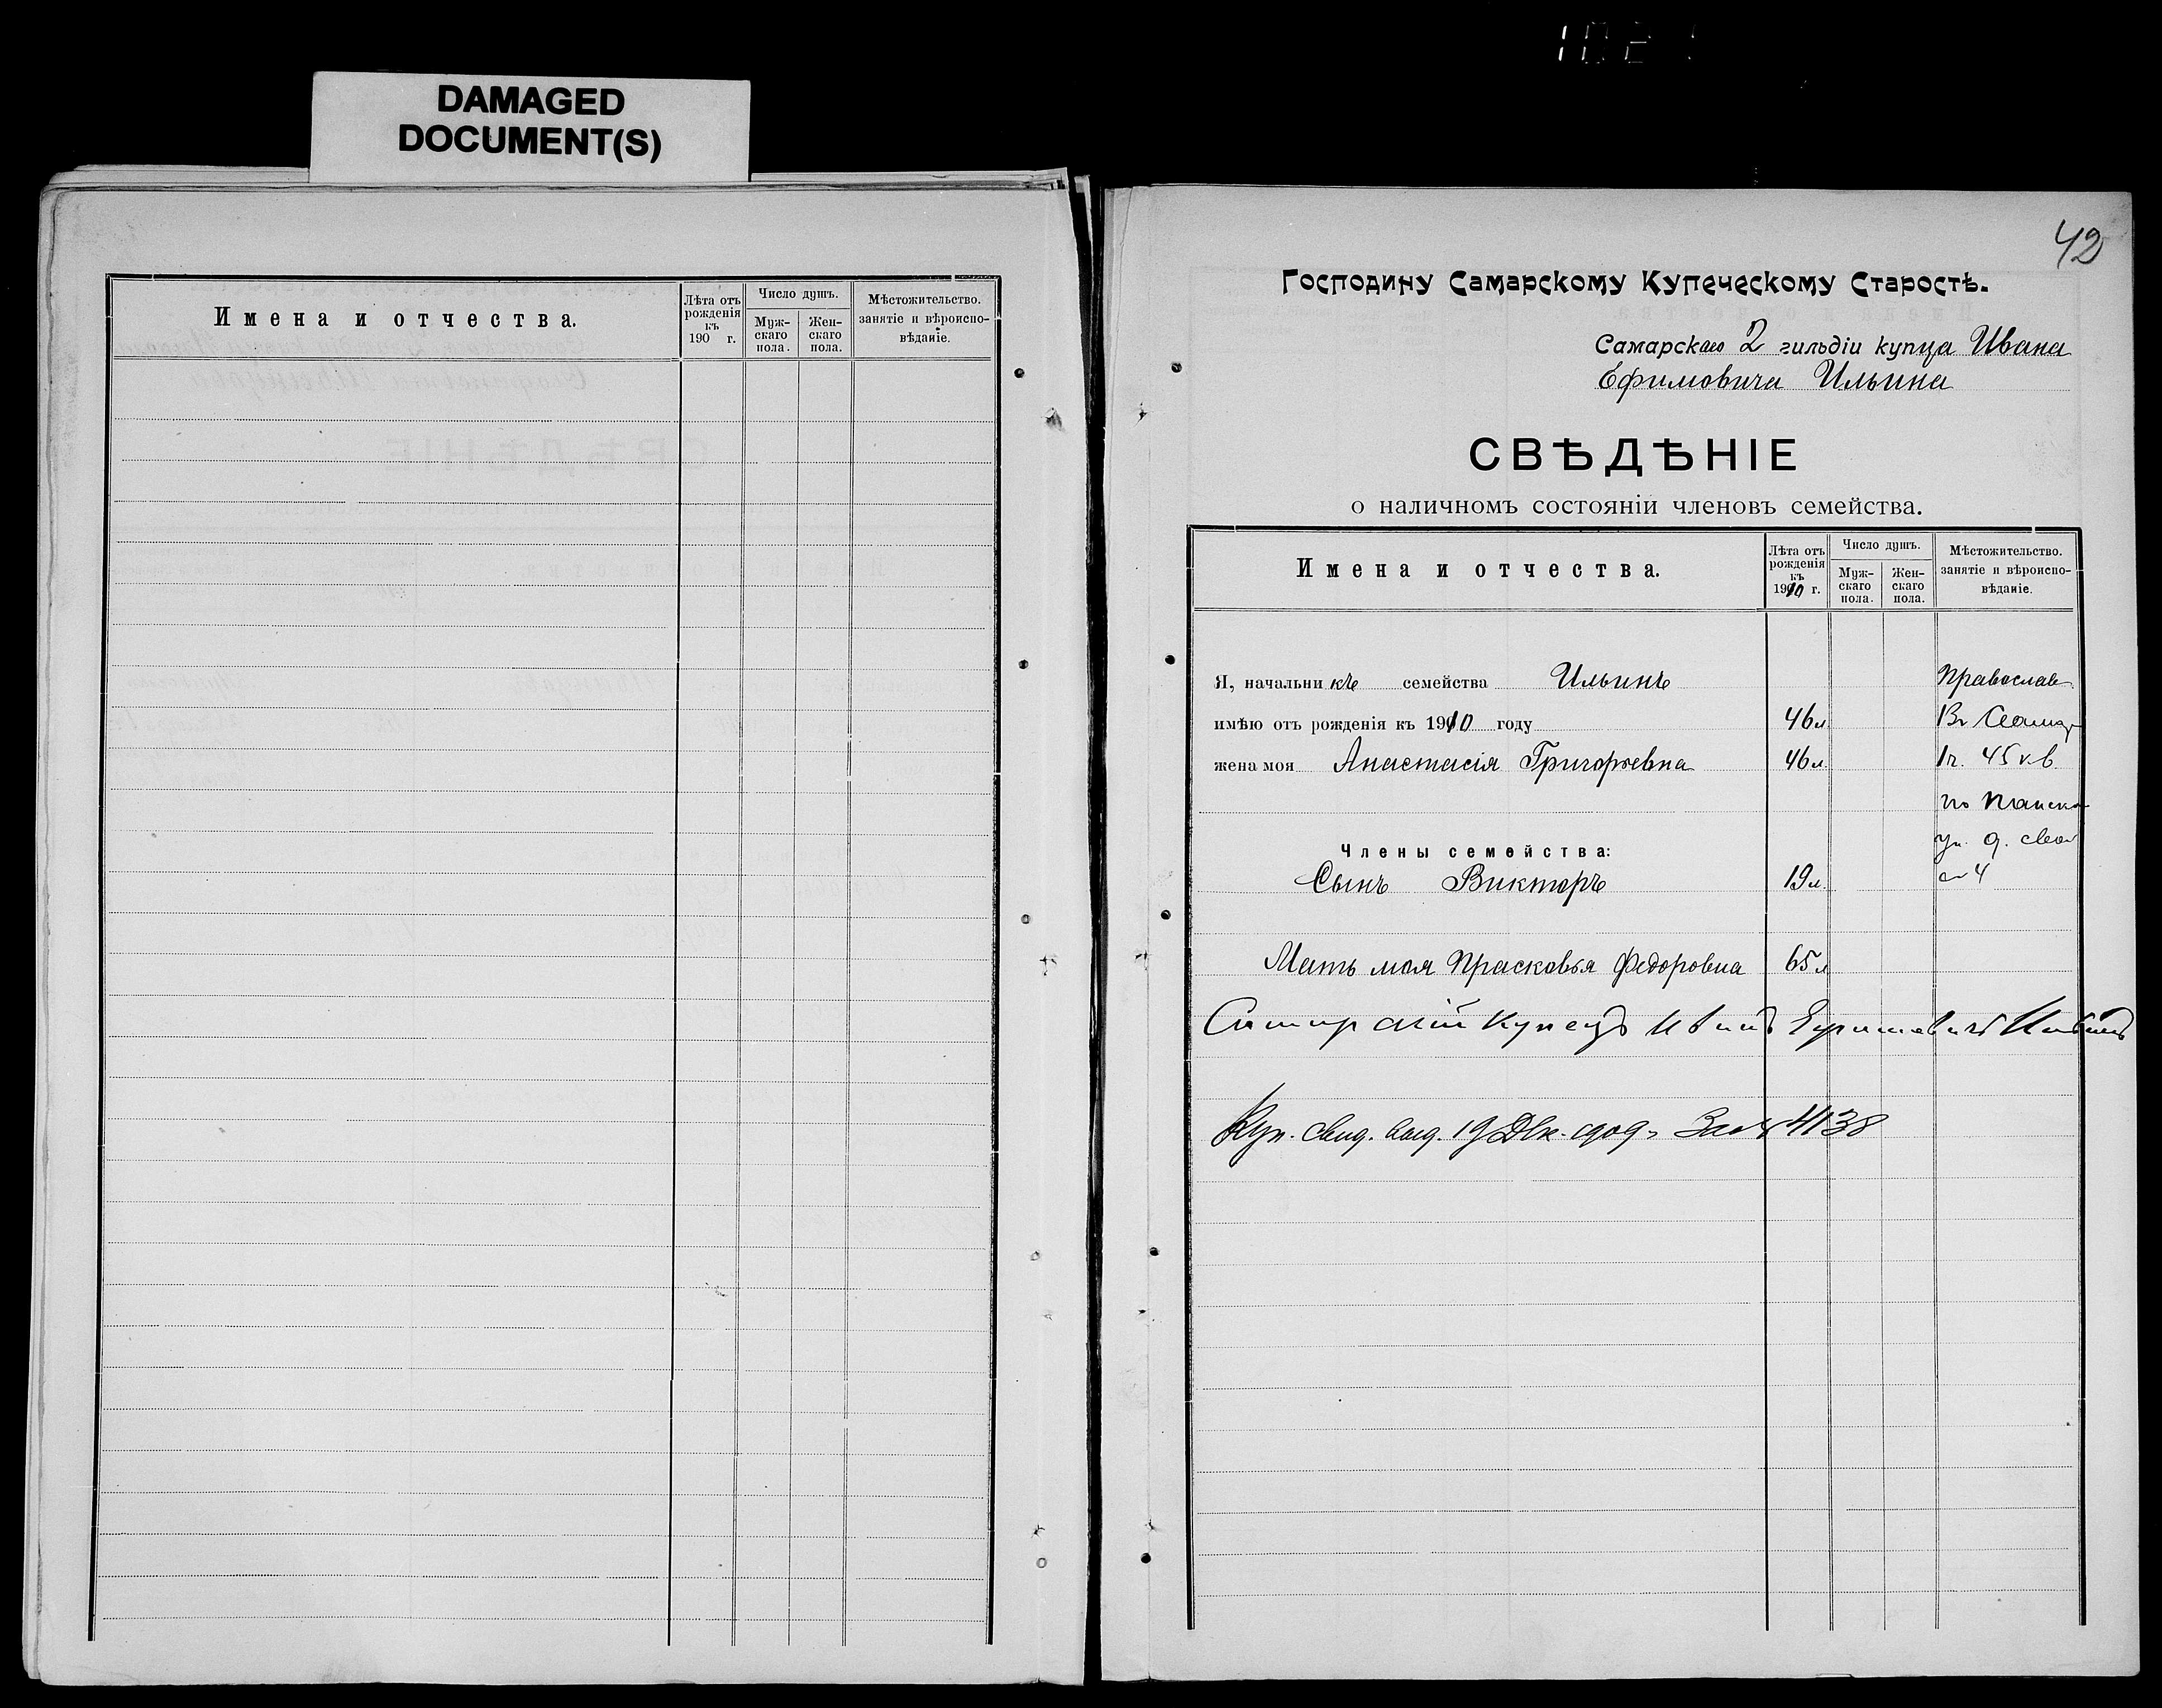 DAMAGED
DOCUMENT(S)
Имена и отчества.
Лѣта отъ рожденія къ 190 г.
Число душъ.
Муж-скаго пола.
Жен-скаго пола.
Мѣстожительство. занятіе и вѣроиспо-вѣданіе.
42
Господину Самарскому Купеческому Старостѣ.
Самарскаго 2 гильдіи купца Ивана
Ефимовича Ильина
СВѢДѢНІЕ
о наличномъ состояніи членовъ семейства.
Имена и отчества.
Лѣта отъ рожденія къ 1910 г.
Число душъ.
Муж-скаго пола.
Жен-скаго пола.
Мѣстожительство. занятіе и вѣроиспо-вѣданіе.
Я, начальникъ семейства Ильинъ Православ
имѣю отъ рожденія къ 1910 году 46 л. Въ Самар
жена моя Анастасія Григорьевна 46 л. 1 ч. 45 кв
по Панск
Члены семейства: ул. д. свой
Сынъ Викторъ 19 л. 4
Мать моя Прасковья Федоровна 65 л
Самарскій Купецъ Иванъ Ефимовичъ Ильинъ
Куп. свид. выд. 19 Дек. 1909 г. За № 4138